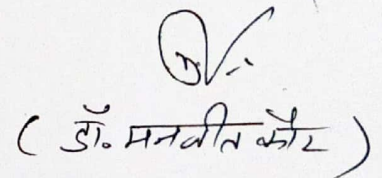 ( डॉ. मनजीत कौर )